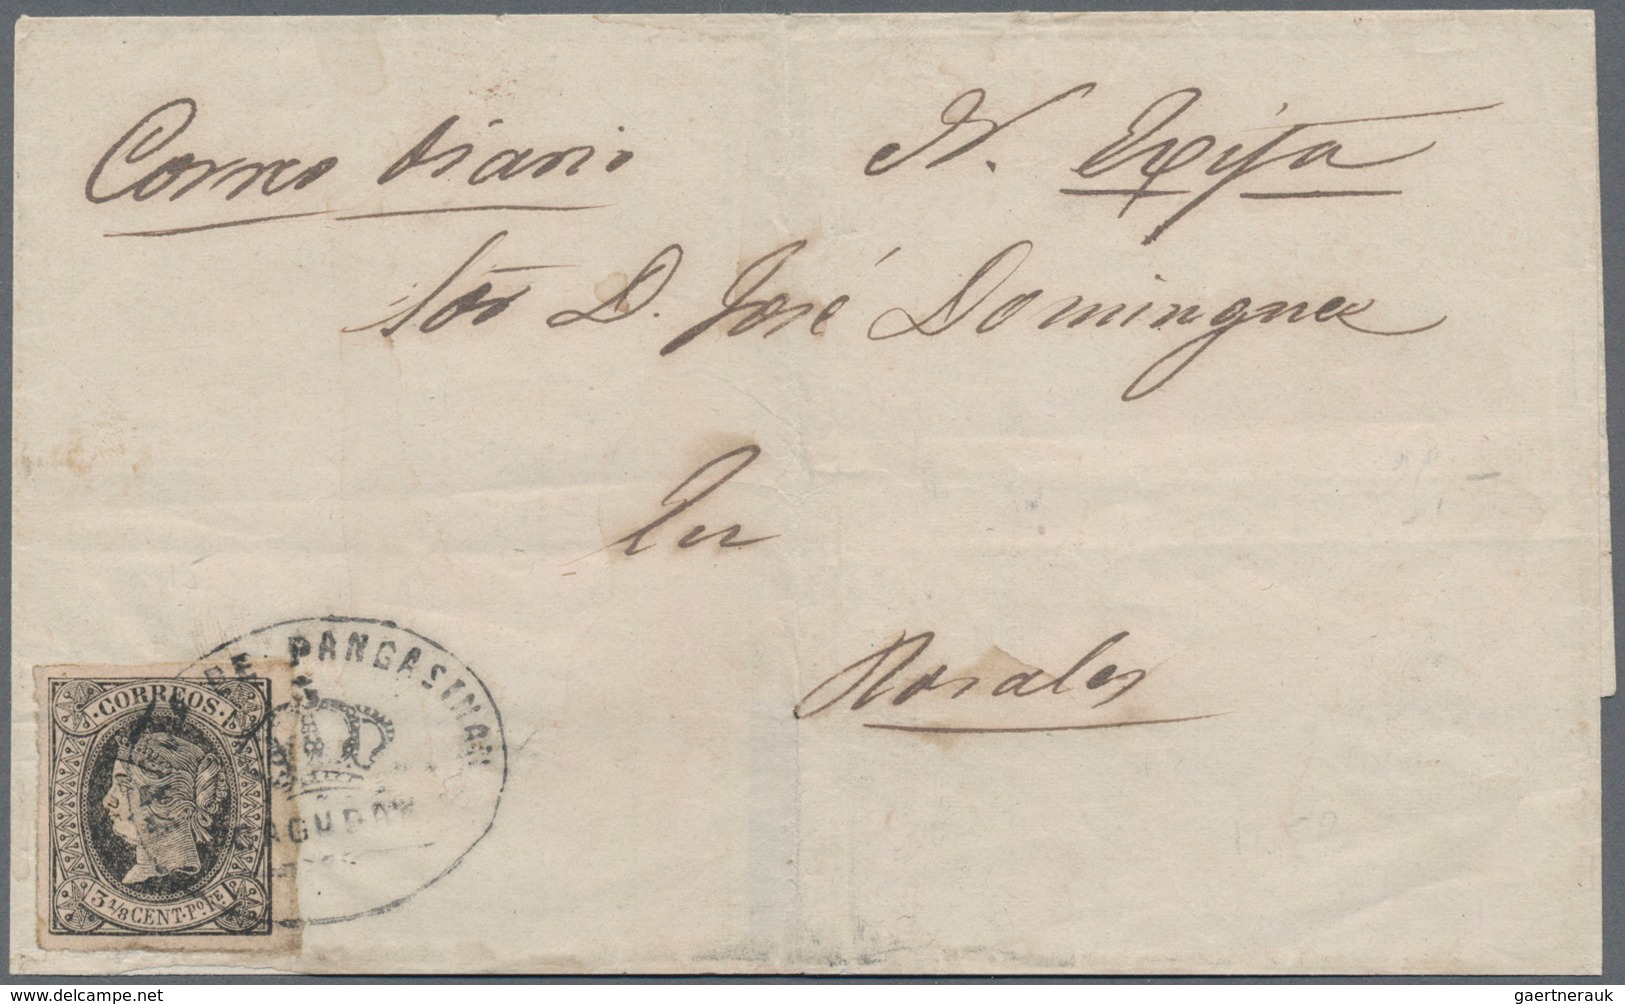 Correo diario
N. Ecija
Sor D. José Domingues
En
Rosales
DE PANGASINAN
DAGUPAN
CORREOS
3 1/8 CENT. Po. Fe
delcampe.net
gaertnerauk